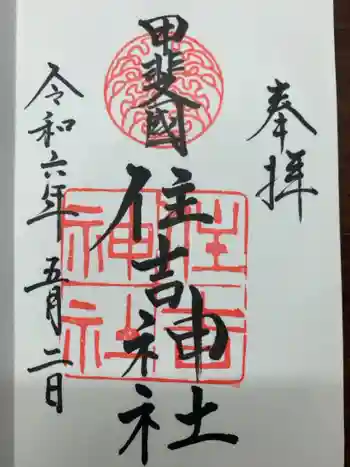 奉拝
甲斐國
住吉神社
令和六年五月二日
住吉
神社